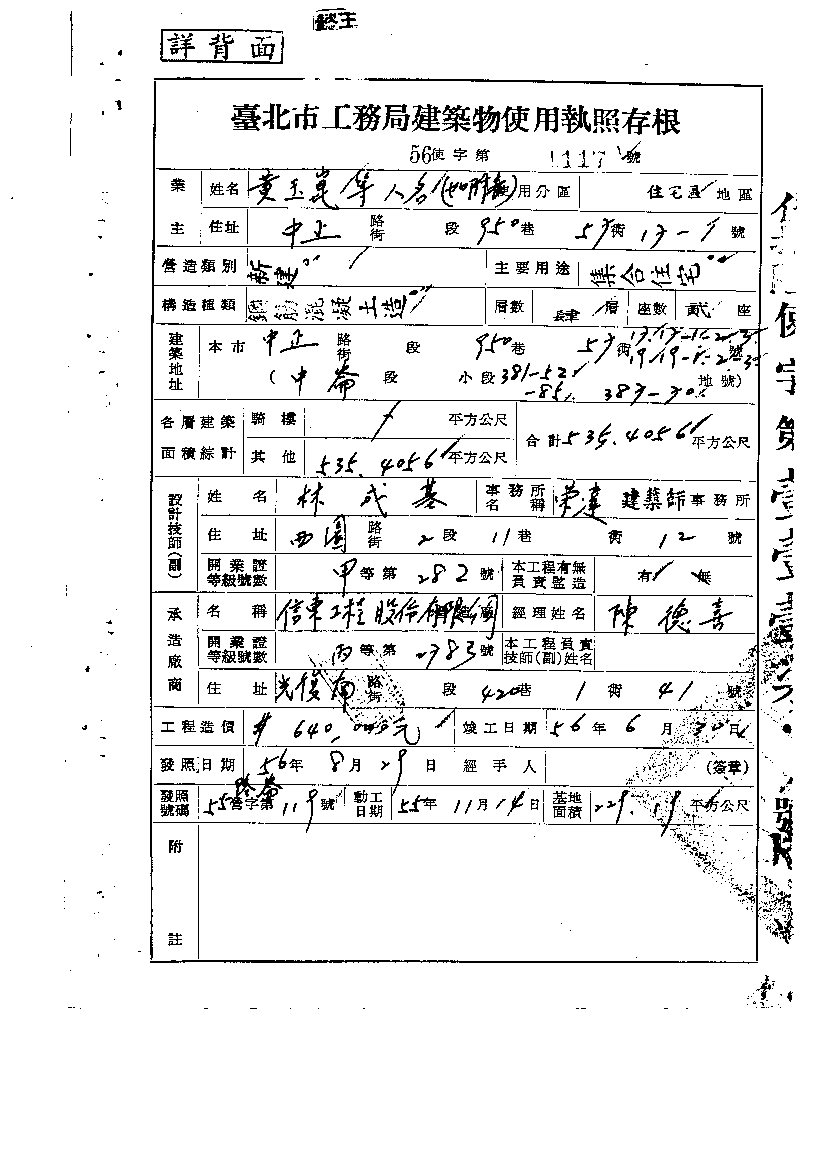 詳背面
臺北市工務局建築物使用執照存根
56使字第 1117 號
業主 姓名 黃玉崑等 人名 使用分區 住宅區 地區
住址 中正 路街 段 950巷 57街 17-1 號
營造類別 新建 主要用途 集合住宅
構造種類 鋼筋混凝土造 層數 肆 層 座數 貳 座
建築地址 本市 中正 路街 段 950巷 57街 17.17-1-2-3. 號
19.19-1-2-3
(中崙 段 小段 381-52 地號)
-85 387-30
各層建築面積綜計 騎樓 平方公尺 合計 535.4056 平方公尺
其他 535.4056 平方公尺
設計技師(副) 姓名 林成基 事務所名稱 榮達 建築師 事務所
住址 西園 路街 2段 11巷 街 12 號
開業證等級號數 甲等第 282 號 本工程有無負責監造 有 無
承造廠商 名稱 信東工程股份有限公司 經理姓名 陳德喜
開業證等級號數 丙等第 2783號 本工程負責技師(副)姓名
住址 光復南 路街 段 420巷 1街 41 號
工程造價 640,000元 竣工日期 56年 6月 30日
發照日期 56年 8月 29日 經手人 (簽章)
發照號碼 55營字第 119號 動工日期 55年 11月 14日 基地面積 229.19 平方公尺
附註
使字第壹壹壹
號